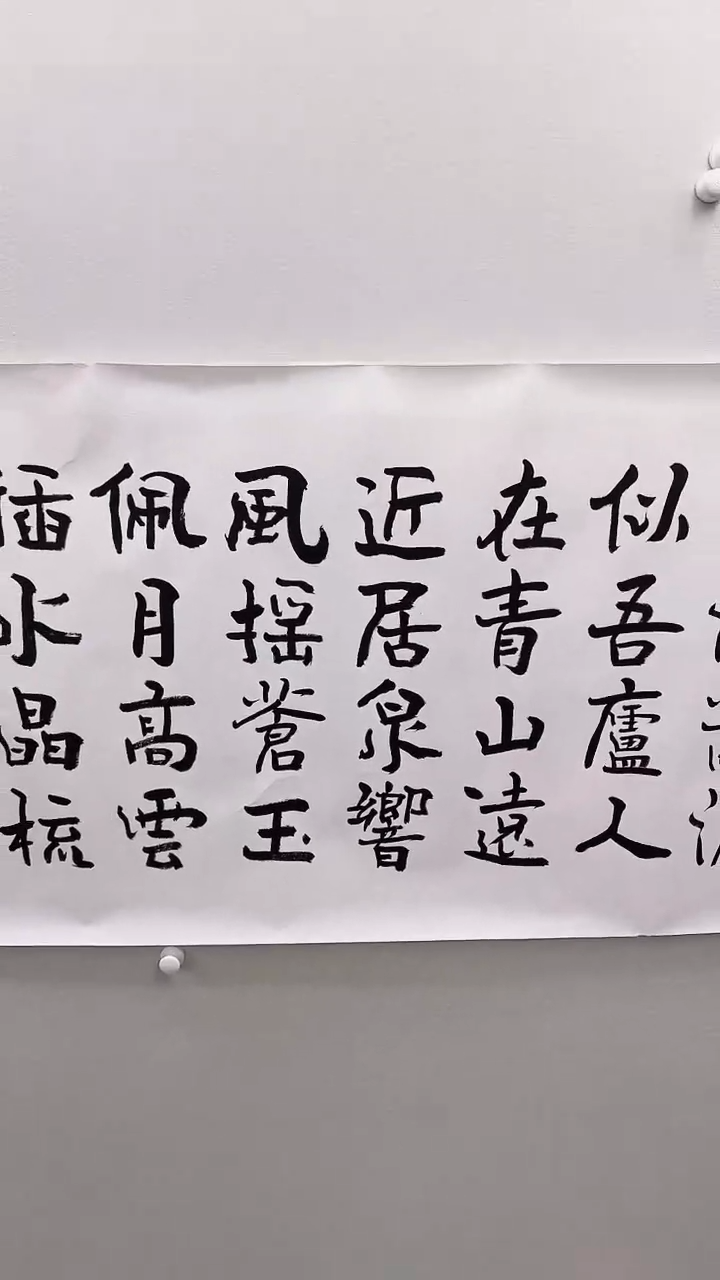 似吾廬人
在青山遠
近居泉響
風摇蒼玉
佩月高雲
插水晶梳